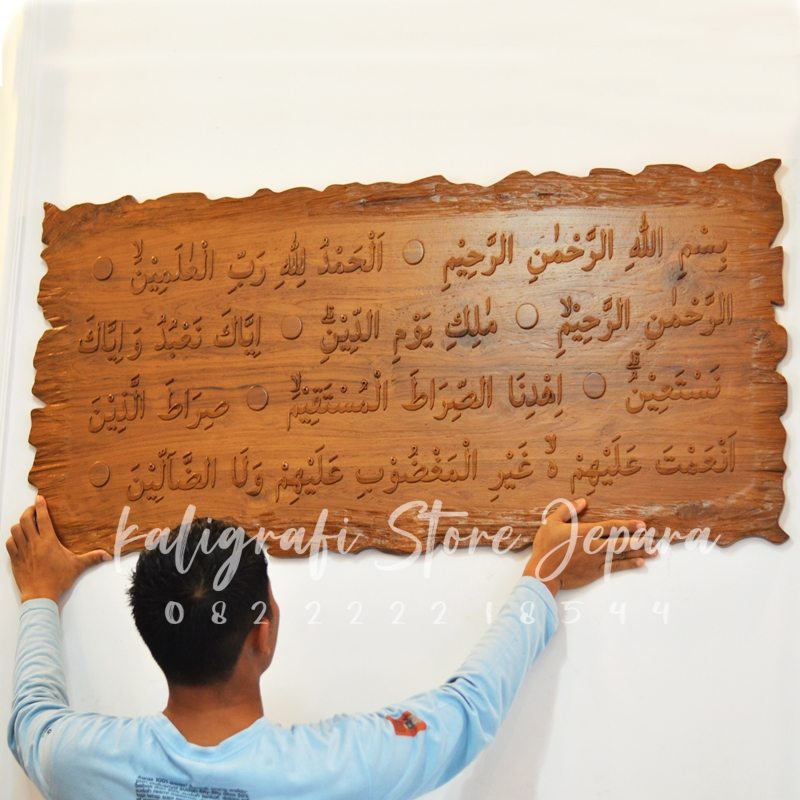 بِسْمِ اللّٰهِ الرَّحْمٰنِ الرَّحِيْمِ ○ اَلْحَمْدُ لِلّٰهِ رَبِّ الْعٰلَمِيْنَۙ ○
الرَّحْمٰنِ الرَّحِيْمِۙ ○ مٰلِكِ يَوْمِ الدِّيْنِۗ ○ اِيَّاكَ نَعْبُدُ وَاِيَّاكَ
نَسْتَعِيْنُۗ ○ اِهْدِنَا الصِّرَاطَ الْمُسْتَقِيْمَۙ ○ صِرَاطَ الَّذِيْنَ
اَنْعَمْتَ عَلَيْهِمْ ەۙ غَيْرِ الْمَغْضُوْبِ عَلَيْهِمْ وَلَا الضَّآلِّيْنَ ○
Kaligrafi Store Jepara
082222218544